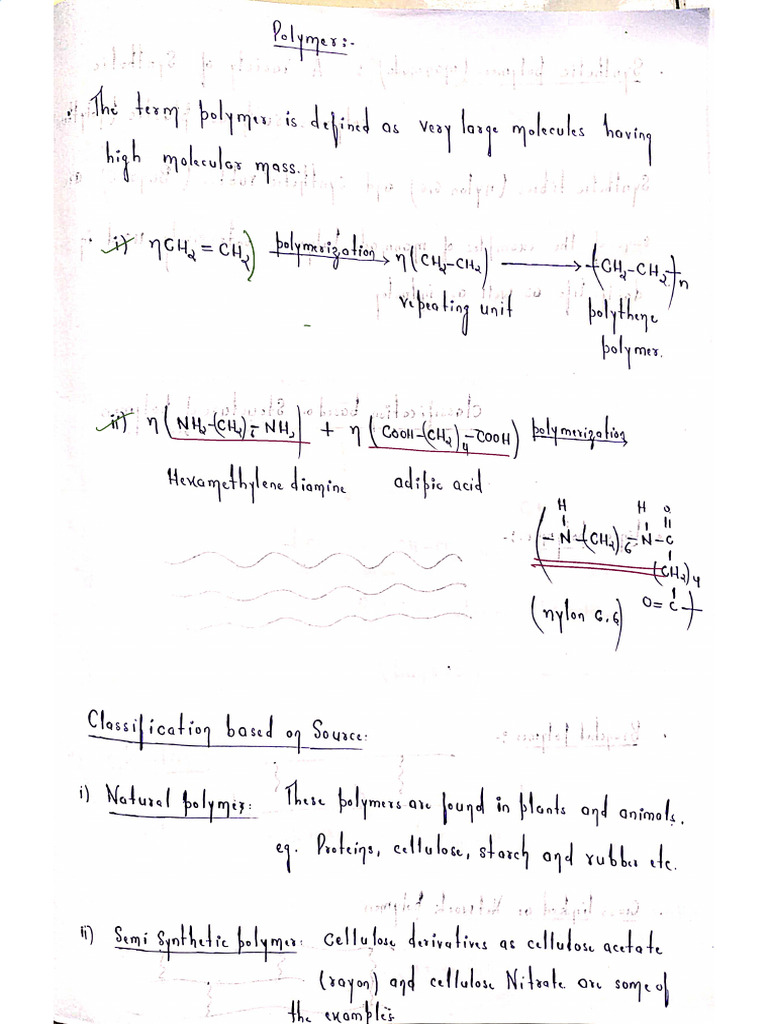 Polymer:-
The term polymer is defined as very large molecules having
high molecular mass.
i) nCH2 = CH2) polymerization → n(CH2-CH2) → (CH2-CH2)n
repeating unit polythene
polymer.
ii) n(NH2-(CH2)6-NH2) + n(COOH-(CH2)4-COOH) polymerization →
Hexamethylene diamine adipic acid
H H O
(-N-(CH2)6-N-C
(CH2)4
O=C-)
(nylon 6,6)
Classification based on Source:
i) Natural polymer: These polymers are found in plants and animals.
eg. Proteins, cellulose, starch and rubber etc.
ii) Semi Synthetic polymer: Cellulose derivatives as cellulose acetate
(rayon) and cellulose Nitrate are some of
the examples